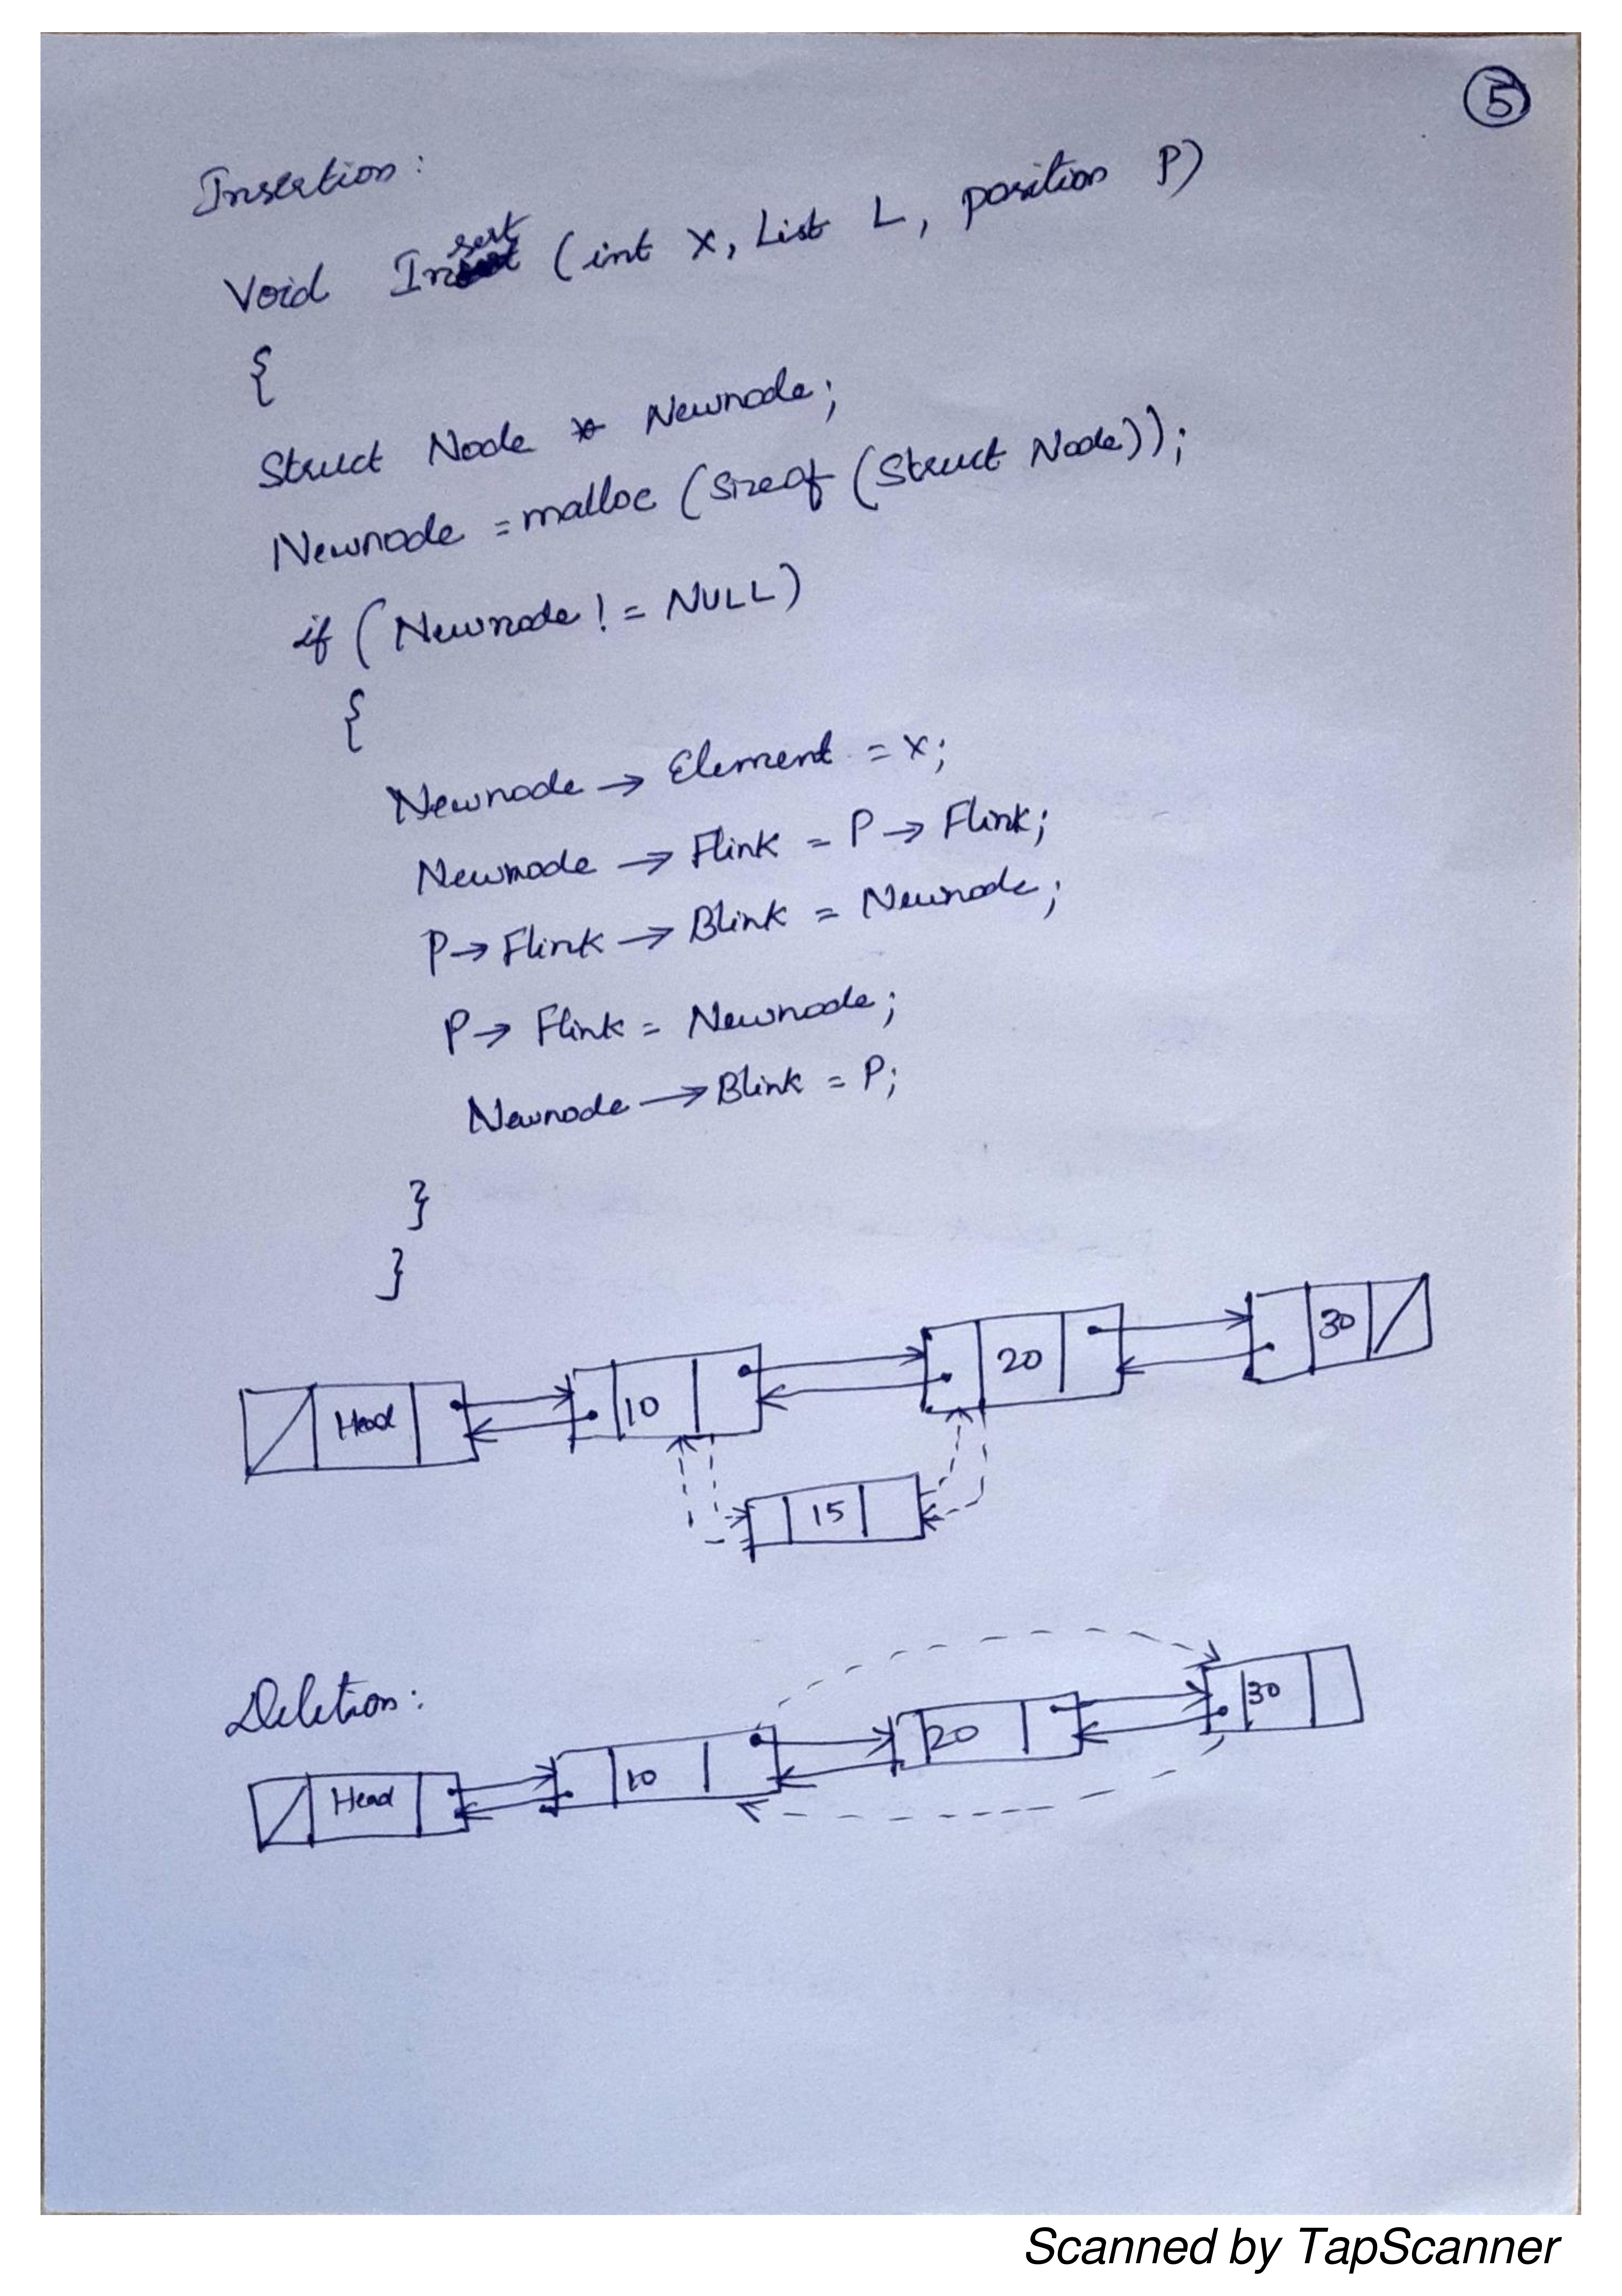 5
Insertion:
Void Insert (int x, List L, position P)
{
Struct Node * Newnode;
Newnode = malloc (Sizeof (Struct Node));
if (Newnode != NULL)
{
Newnode → Element = x;
Newnode → Flink = P → Flink;
P → Flink → Blink = Newnode;
P → Flink = Newnode;
Newnode → Blink = P;
}
}
Head 10 20 30
15
Deletion:
Head 10 20 30
Scanned by TapScanner